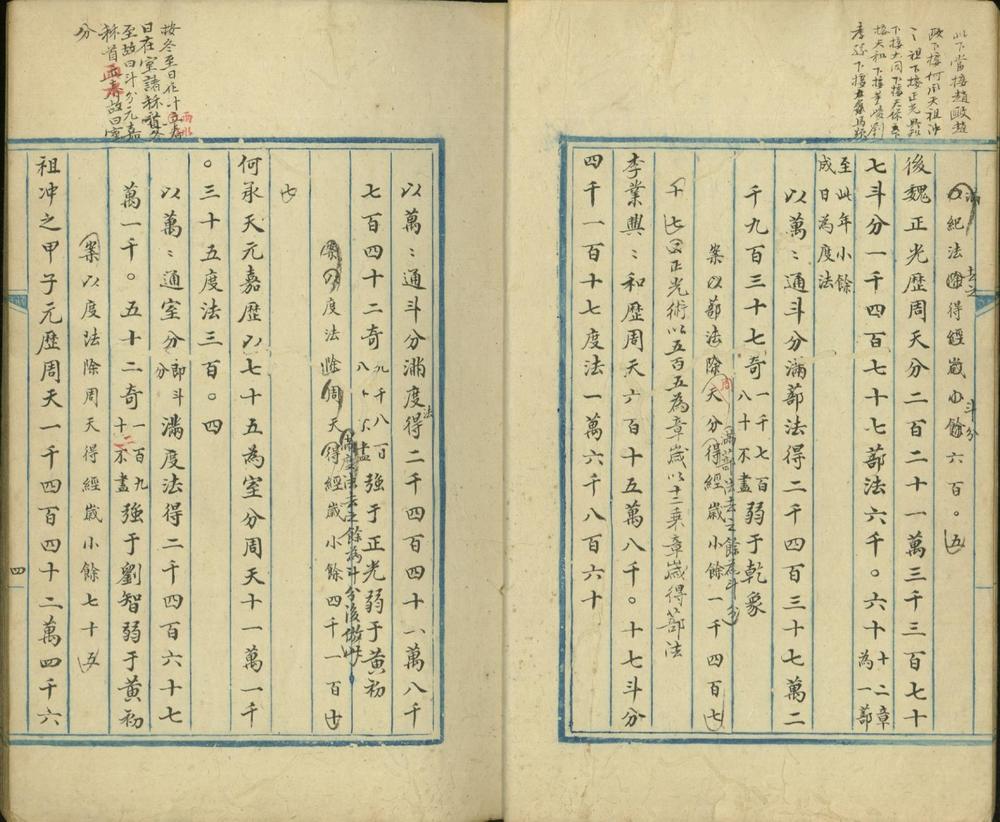 以下當接趙𢾺趙
𢾺下接何用大祖冲
之祖下接正光興和
下接大同下接天保下
接天和下接
孝孫下接
以紀法除得經歲小餘六百〇五
滿 去之 斗分
後魏正光歷周天分二百二十一萬三千三百七十
七斗分一千四百七十七蔀法六千〇六十十二章
為一蔀
至此年小餘
成日為度法
以萬〻通斗分滿蔀法得二千四百三十七萬二
千九百三十七奇一千七百
八十不盡弱于乾象
案以蔀法除周天分得經歲小餘一千四百七
滿蔀法去之餘為斗分
十七
正光術以五百五為章歲以十二乘章歲得蔀法
李業興〻和歷周天六百十五萬八千〇十七斗分
四千一百十七度法一萬六千八百六十
按冬至日在斗
日在室諸秝冬
至故曰斗分元嘉
秝首雨水故曰室
分
雨水
以萬〻通斗分滿度法得二千四百四十八萬八千
七百四十二奇九千八百
八十不盡強于正光弱于黃初
案以度法除周天得經歲小餘四千一百十
滿度法去之餘為斗分後倣此
七
何承天元嘉歷以七十五為室分周天十一萬一千
〇三十五度法三百〇四
以萬〻通室分即斗
分滿度法得二千四百六十七
萬一千〇五十二奇一百九
十二不盡強于劉智弱于黃初
案以度法除周天得經歲小餘七十五
祖冲之甲子元歷周天一千四百四十二萬四千六
四